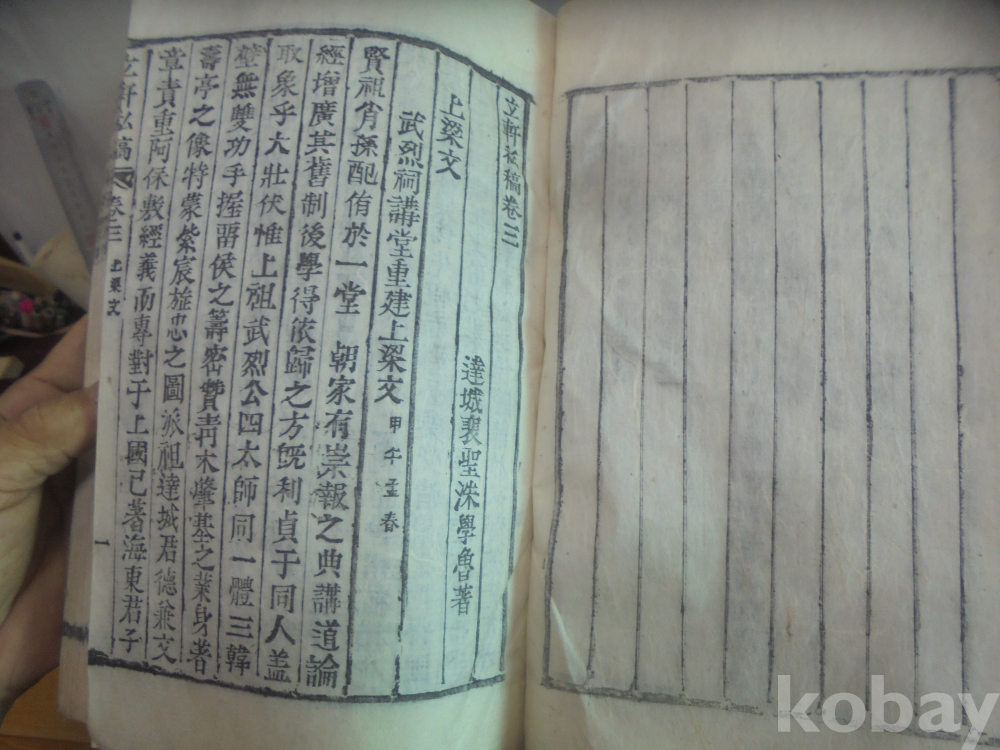 立軒私稿卷三
達城裵聖洙學魯著
上梁文
武烈祠講堂重建上梁文 甲午孟春
賢祖肖孫配侑於一堂 朝家有崇報之典講道論
經增廣其舊制後學得依歸之方旣利貞于同人盖
取象乎大壯伏惟上祖武烈公四太師同一體三韓
壁無雙功手握留侯之籌密贊靑木肇基之業身著
壽亭之像特蒙紫宸旌忠之圖派祖達城君德兼文
章責重阿保敷經義而專對于上國已著海東君子
立軒私稿 卷三 上梁文 一
kobay